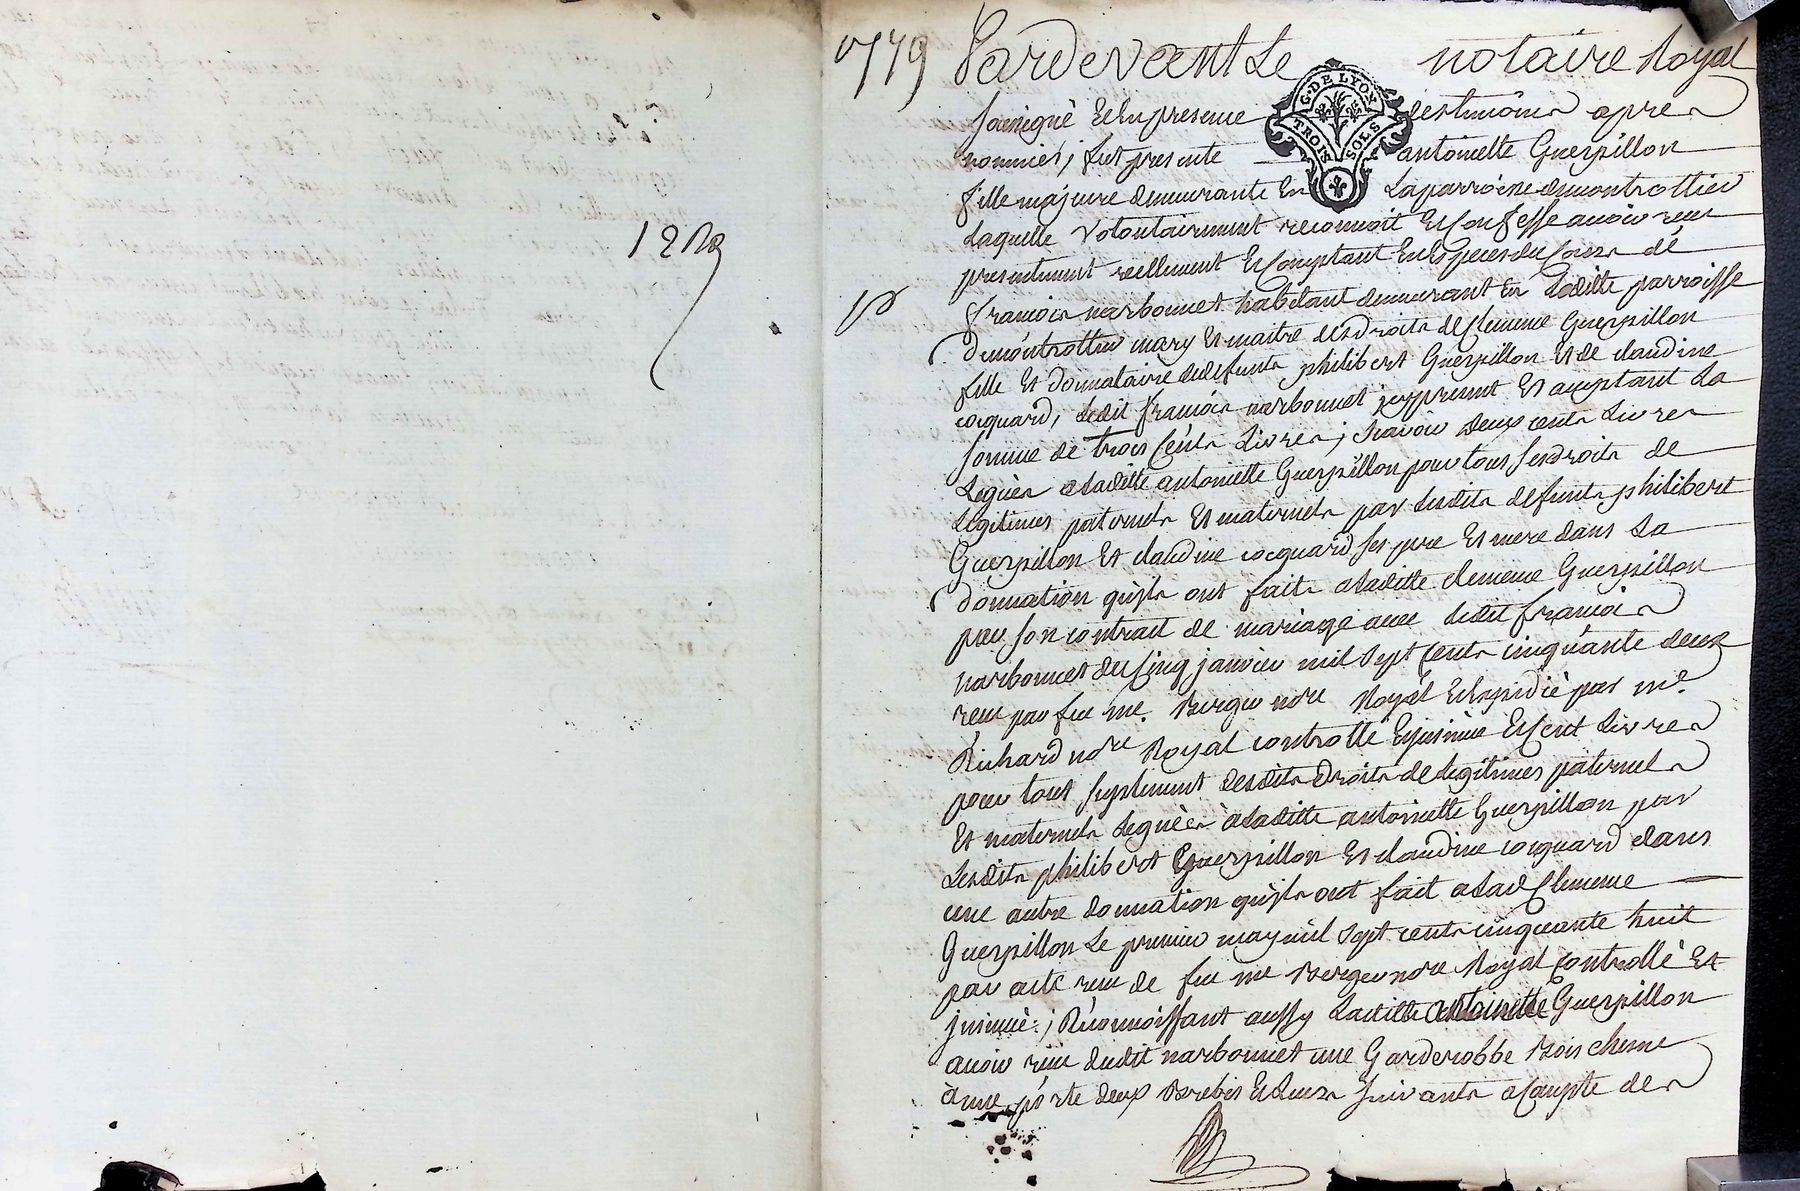 1779 Pardevant Le notaire Royal
G. DE LYON
TROIS SOLS
soussigné Et En presence destimoins apres
nommés, fut presente antoinette Guerpillon
fille majeure demeurante En Laparroisse demontrottier
Laquelle Volontairement reconnoit Et Confesse avoir receu
presentement reellement Et Comptant En Especes du Cours de
françois narbonnet habitant demeurant En Laditte parroisse
demontrottier mary Et maitre desdroits de Clemence Guerpillon
fille Et donnataire dedefunts philibert Guerpillon Et de claudine
cocquard, ledit françois narbonnet icypresent Et acceptant La
somme de trois Cents Livres; sçavoir deux cents Livres
Leguées aladitte antoinette Guerpillon pour tous ses droits de
Legitimes paternels Et maternels par lesdits defunts philibert
Guerpillon Et claudine cocquard ses pere Et mere dans La
donnation qu'ils ont faite aladitte clemence Guerpillon
par son contrat de mariage avec ledit françois
narbonnet du Cinq janvier mil sept Cents cinquante deux
receu par feu me. Berger nore Royal Et Expedié par me.
Richard nore Royal controllé Et insinué Et Cent Livres
pour tout suplement desdits droits de legitimes paternels
Et maternels Leguées aladitte antoinette Guerpillon par
Lesdits philibert Guerpillon Et claudine cocquard dans
une autre donnation qu'ils ont fait alad. Clemence
Guerpillon Le premier may mil sept cents cinquante huit
par acte receu de feu me Berger nore Royal Controllé Et
jnsinué; Reconnoissant aussy Laditte antoinette Guerpillon
avoir receu dudit narbonnet une Garderobbe Bois chesne
a une porte deux Brebis Et Leurs suivants acompte des